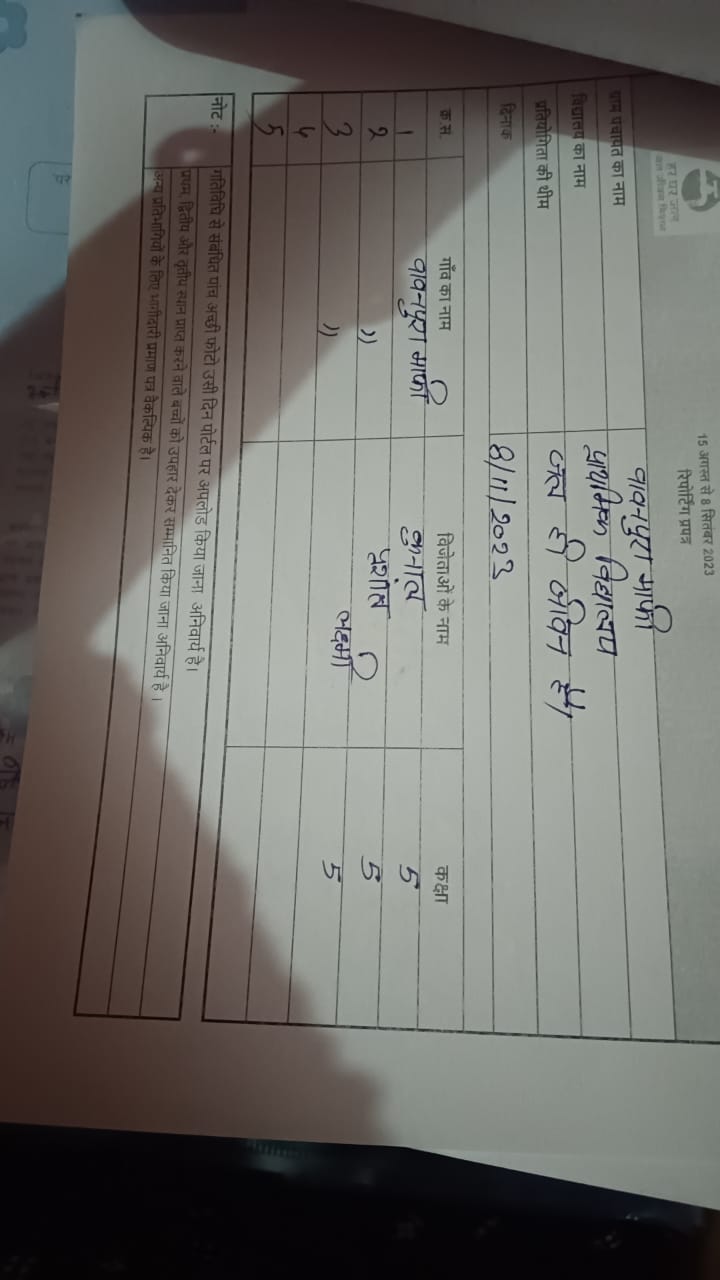 हर घर जल
जल जीवन मिशन
15 अगस्त से 8 सितंबर 2023
रिपोर्टिंग प्रपत्र
ग्राम पंचायत का नाम
विद्यालय का नाम प्राथमिक विद्यालय
प्रतियोगिता की थीम जल ही जीवन है,
दिनांक 8/11/2023
क्र.स. गाँव का नाम विजेताओं के नाम कक्षा
1 5
२ )) 5
3 )) लक्ष्मी 5
4
5
नोट :- गतिविधि से संबंधित पांच अच्छी फोटो उसी दिन पोर्टल पर अपलोड किया जाना अनिवार्य है।
प्रथम, द्वितीय और तृतीय स्थान प्राप्त करने वाले बच्चों को उपहार देकर सम्मानित किया जाना अनिवार्य है ।
अन्य प्रतिभागियों के लिए भागीदारी प्रमाण पत्र वैकल्पिक है।